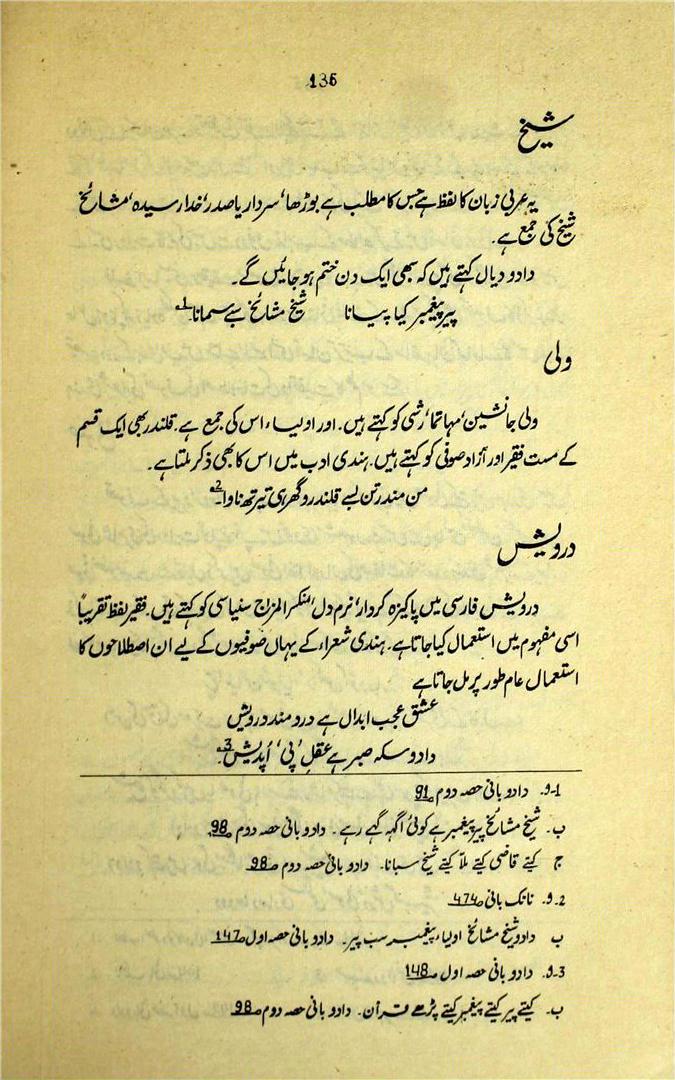 136
شیخ
یہ عربی زبان کا لفظ ہے جس کا مطلب ہے بوڑھا، سردار یا صدر، خدا رسیدہ، مشائخ
شیخ کی جمع ہے۔
دادو دیال کہتے ہیں کہ سبھی ایک دن ختم ہو جائیں گے۔
پیر پیغمبر کیا پیانا شیخ مشائخ سبے سمانا 1
ولی
ولی جانشین، مہاتما، رشی کو کہتے ہیں۔ اور اولیاء اس کی جمع ہے۔ قلندر بھی ایک قسم
کے مست فقیر اور آزاد صوفی کو کہتے ہیں۔ ہندی ادب میں اس کا بھی ذکر ملتا ہے۔
من مندر تن بسے قلندر و گھر ہی تیرتھ ناوا۔ 2
درویش
درویش فارسی میں پاکیزہ کردار، نرم دل، منکسر المزاج سنیاسی کو کہتے ہیں۔ فقیر لفظ تقریباً
اسی مفہوم میں استعمال کیا جاتا ہے۔ ہندی شعراء کے یہاں صوفیوں کے لیے ان اصطلاحوں کا
استعمال عام طور پر مل جاتا ہے
عشق عجب ابدال ہے درد مند درویش
دادو سکہ صبر ہے عقل 'پی' اُپدیش 3
1-و۔ دادو بانی حصہ دوم ص 91
ب۔ شیخ مشائخ پیر پیغمبر ہے کوئی اگہہ گہے رہے۔ دادو بانی حصہ دوم ص 98
ج کیتے قاضی کیتے ملّا کیتے شیخ سبانا۔ دادو بانی حصہ دوم ص 98
2-و۔ نانک بانی ص 474
ب دادو شیخ مشائخ اولیاء پیغمبر سب پیر۔ دادو بانی حصہ اول ص 147
3-و۔ دادو بانی حصہ اول ص 148
ب۔ کیتے پیر کیتے پیغمبر کیتے پڑھے قرآن۔ دادو بانی حصہ دوم ص 98